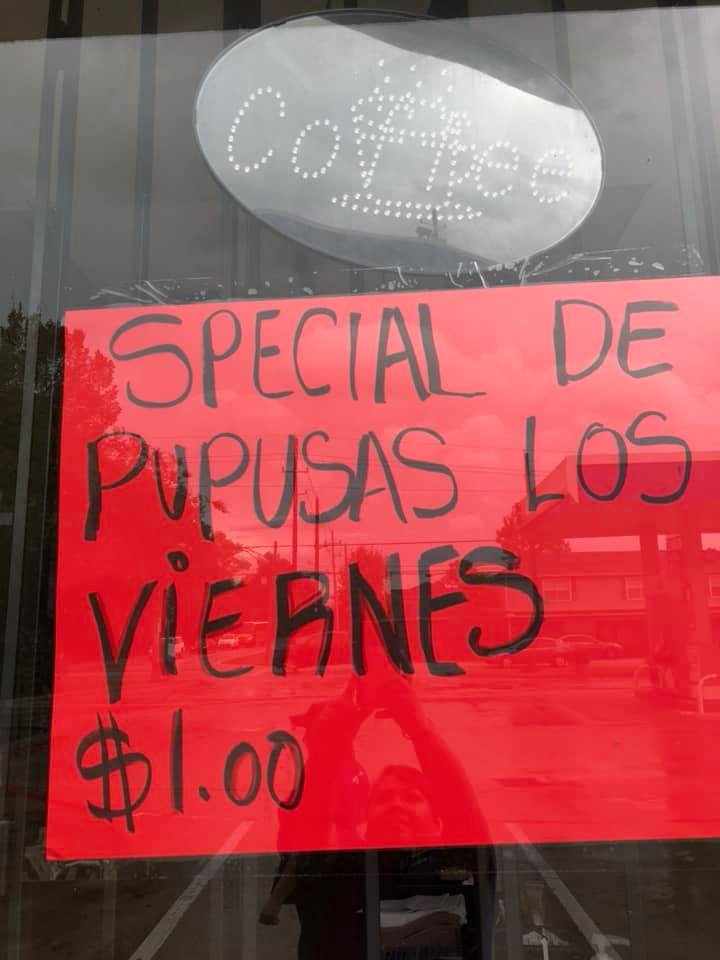 Coffee
SPECIAL DE
PUPUSAS LOS
ViERNES
$1.00